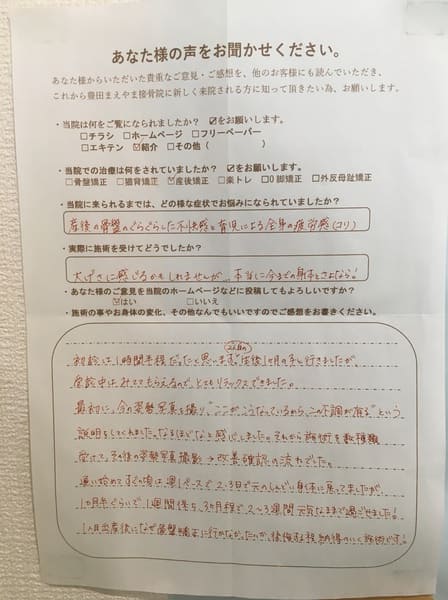 あなた様の声をお聞かせください。
あなた様からいただいた貴重なご意見・ご感想を、他のお客様にも読んでいただき、
これから豊田まえやま接骨院に新しく来院される方に知って頂きたい為、お願いします。
・当院は何をご覧になられましたか？ ☑をお願いします。
□チラシ □ホームページ □フリーペーパー
□エキテン ☑紹介 □その他（ ）
・当院での治療は何をされていましたか？ ☑をお願いします。
□骨盤矯正 □猫背矯正 ☑産後矯正 □楽トレ □O脚矯正 □外反母趾矯正
・当院に来られるまでは、どの様な症状でお悩みになられていましたか？
産後の骨盤のぐらぐらした不快感と育児による全身の疲労感(コリ)
・実際に施術を受けてどうでしたか？
大げさに感じるかもしれませんが、本当に今までの身体とさよなら!
・あなた様のご意見を当院のホームページなどに投稿してもよろしいですか？
☑はい □いいえ
・施術の事やお身体の変化、その他なんでもいいですのでご感想をお書きください。
2人目の
初診は1時間半程だったと思います。産後1ヶ月の 行きましたが、
受診中はみててもらえるので、とてもリラックスできました。
最初に、今の姿勢写真を撮り、"ここがこうなっているから、この不調が有る"という
説明をしてくれました。なるほどなと感心しました。それから施術を数種類
受けて、その後の姿勢写真撮影→改善確認の流れでした。
通い始めてすぐの頃は、週1ペースで2-3日で元のしんどい身体に戻ってましたが、
1ヶ月半ぐらいで1週間保ち、3ヶ月程で2~3週間元気なままで過ごせました!
1人目出産後になぜ骨盤矯正に行かなかったのか、後悔する程納得のいく施術です!